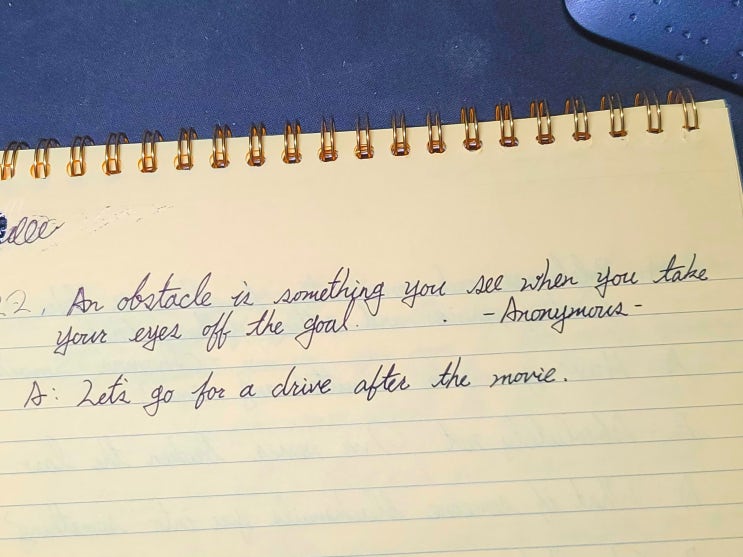 22. An obstacle is something you see when you take
your eyes off the goal. - Anonymous -
A: Let's go for a drive after the movie.